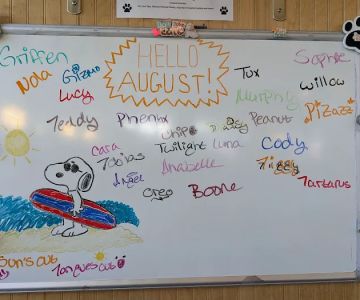 Griffen
Nola
Gizmo
Lucy
HELLO
AUGUST!
Tux
Sophie
Willow
Murphy
Pizazz
Teddy
Phenix
Chip
Peanut
Cara
Tobias
Twilight
Luna
Cody
Annabelle
Angel
Oreo
Boone
Tartarus
Sun's out
Tongues out